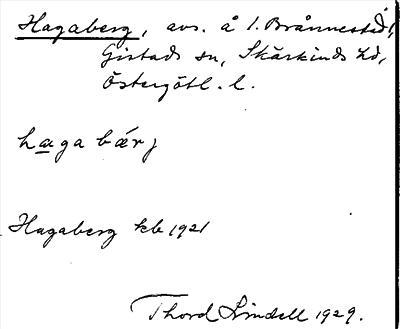 Hagaberg, avs. å 1. Brånnestad,
Gistads sn, Skärkinds hd,
Östergötl. l.
hagabärj
Hagaberg kb 1921
Thord Lindell 1929.